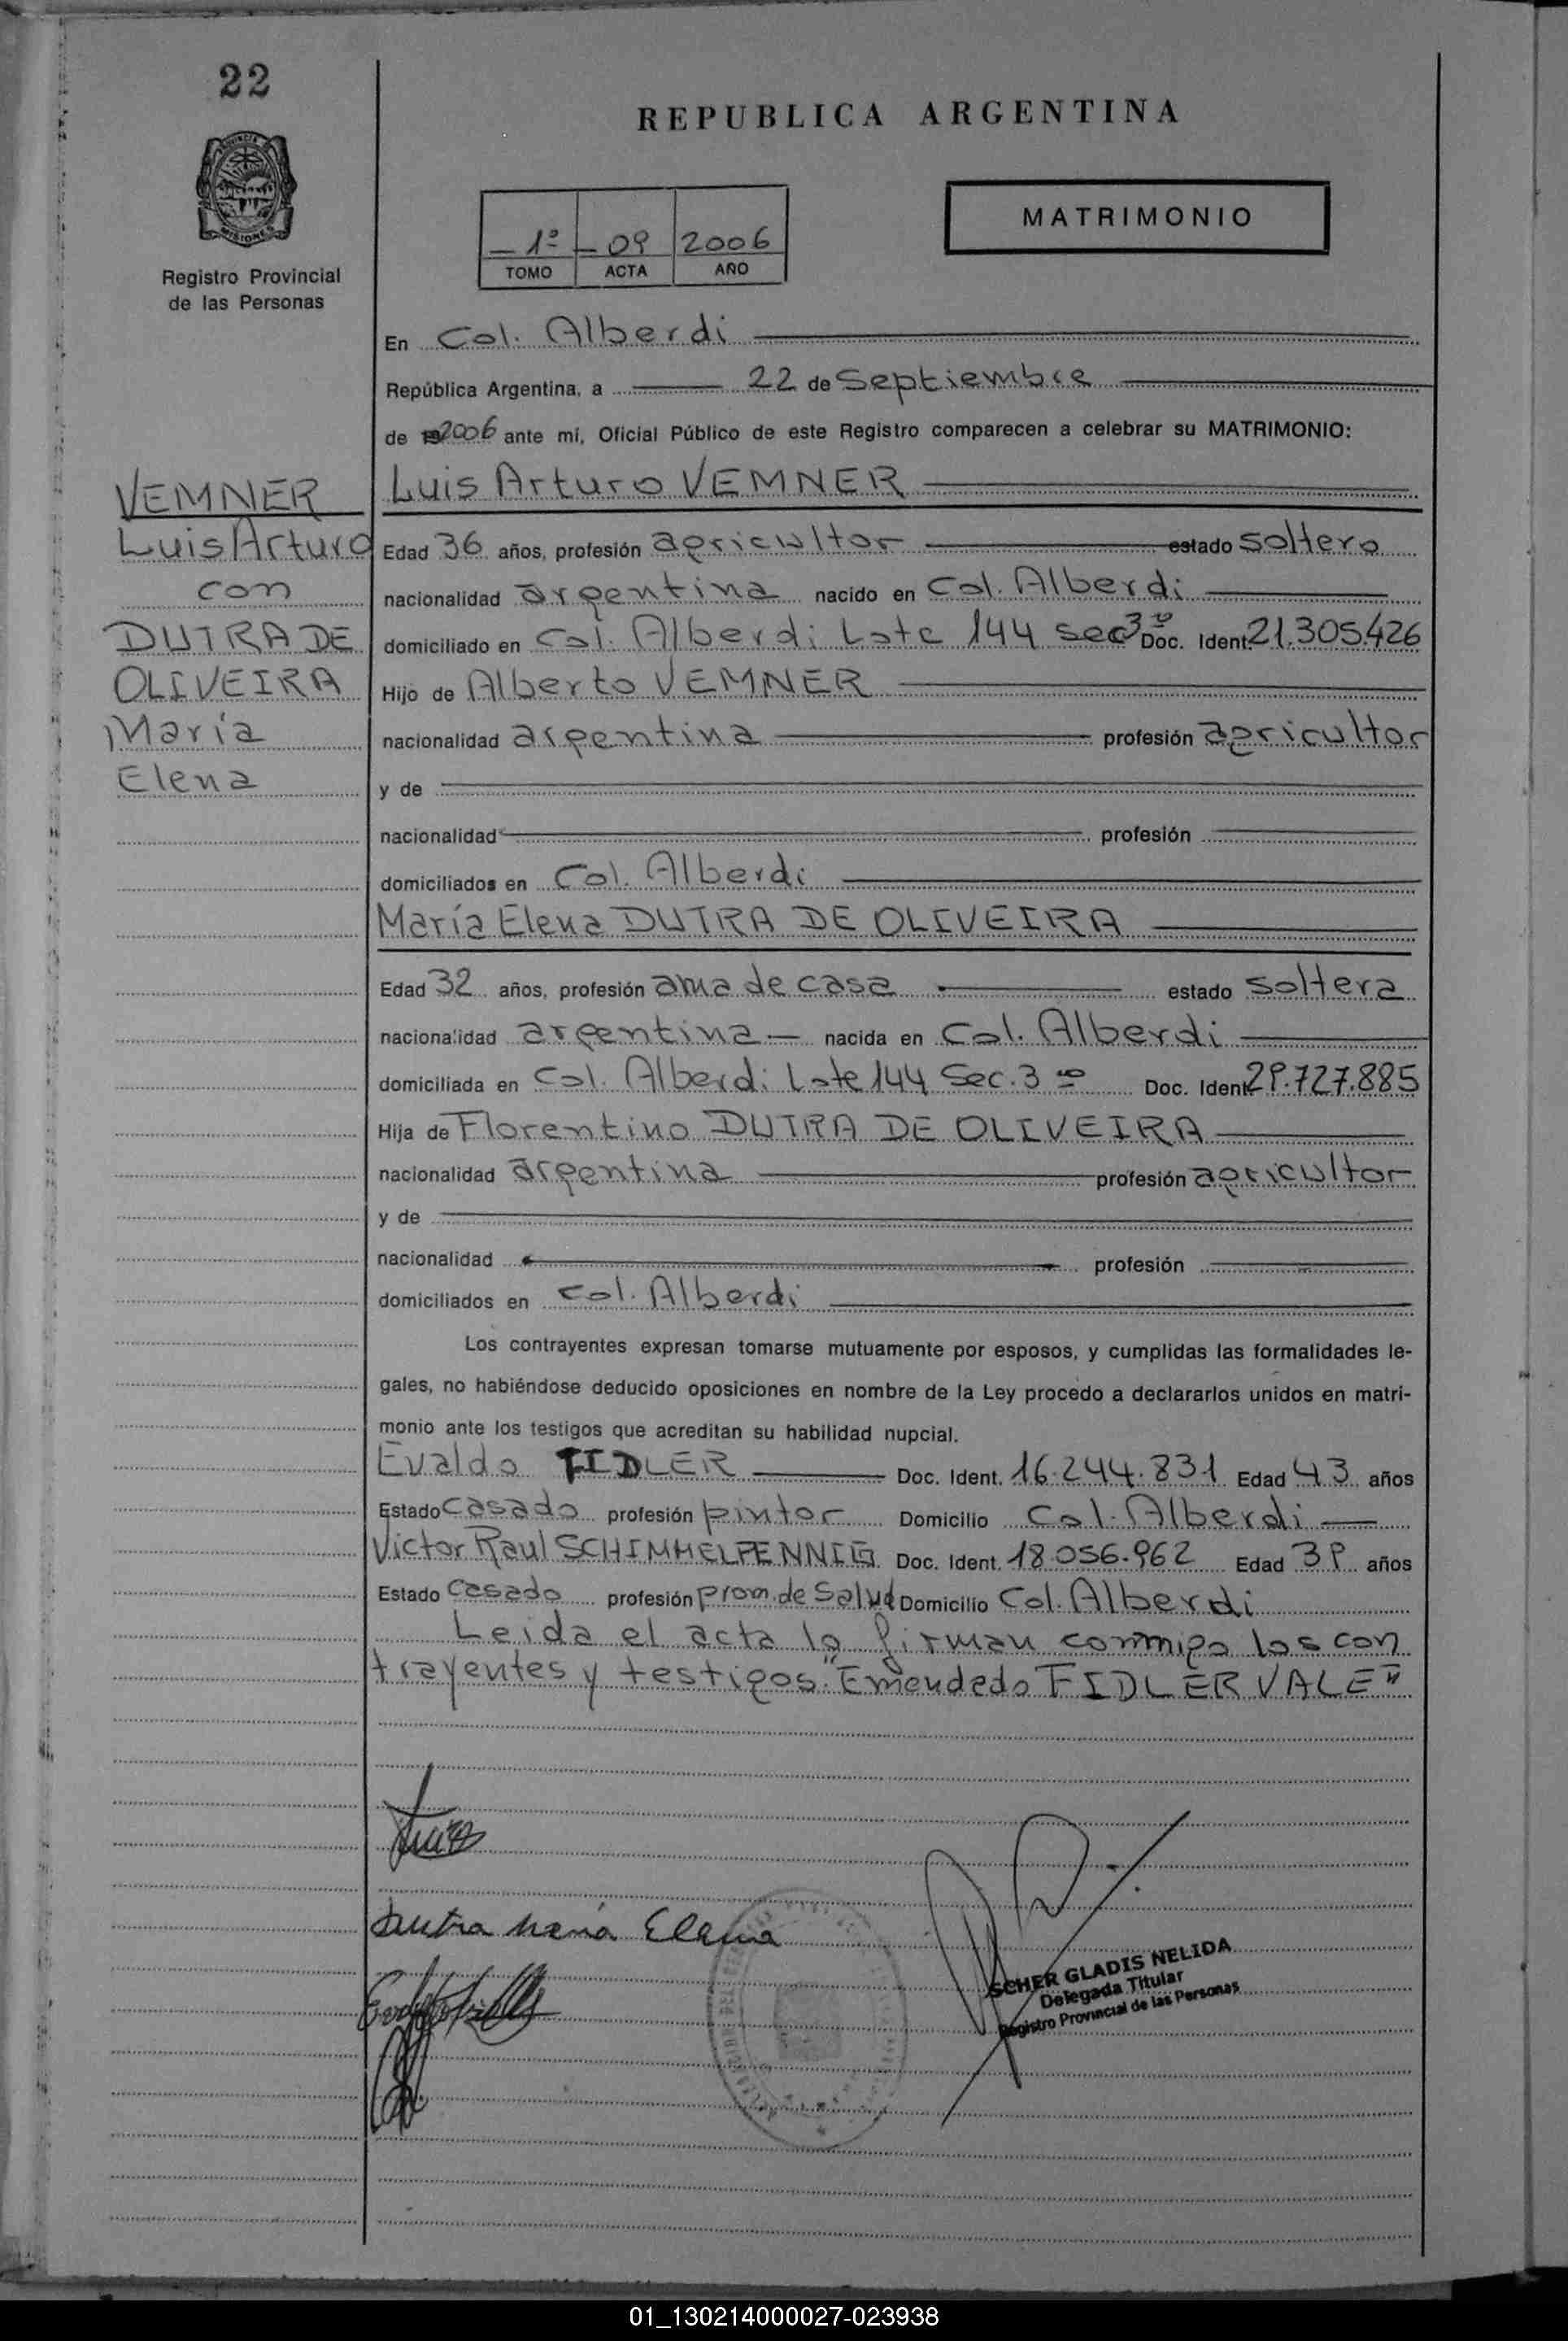 22
REPUBLICA ARGENTINA
MISIONES
Registro Provincial
de las Personas
1º 09 2006
TOMO ACTA AÑO
MATRIMONIO
En Col. Alberdi
República Argentina, a 22 de Septiembre
de 2006 ante mí, Oficial Público de este Registro comparecen a celebrar su MATRIMONIO:
VEMNER
Luis Arturo
con
DUTRA DE
OLIVEIRA
María
Elena
Luis Arturo VEMNER
Edad 36 años, profesión agricultor estado soltero
nacionalidad argentina nacido en Col. Alberdi
domiciliado en Col. Alberdi Lote 144 sec 3ra Doc. Ident. 21.305.426
Hijo de Alberto VEMNER
nacionalidad argentina profesión agricultor
y de
nacionalidad profesión
domiciliados en Col. Alberdi
María Elena DUTRA DE OLIVEIRA
Edad 32 años, profesión ama de casa estado soltera
nacionalidad argentina nacida en Col. Alberdi
domiciliada en Col. Alberdi Lote 144 Sec. 3ra Doc. Ident. 29.727.885
Hija de Florentino DUTRA DE OLIVEIRA
nacionalidad argentina profesión agricultor
y de
nacionalidad profesión
domiciliados en Col. Alberdi
Los contrayentes expresan tomarse mutuamente por esposos, y cumplidas las formalidades le-
gales, no habiéndose deducido oposiciones en nombre de la Ley procedo a declararlos unidos en matri-
monio ante los testigos que acreditan su habilidad nupcial.
Evaldo FIDLER Doc. Ident. 16.244.831 Edad 43 años
Estado casado profesión pintor Domicilio Col. Alberdi
Victor Raul SCHIMMELFENNIG Doc. Ident. 18.056.962 Edad 39 años
Estado casado profesión prom. de Salud Domicilio Col. Alberdi
Leida el acta la firman conmigo los con
trayentes y testigos. "Emendado FIDLER VALE"
Dutra María Elena
SCHER GLADIS NELIDA
Delegada Titular
Registro Provincial de las Personas
01_130214000027-023938